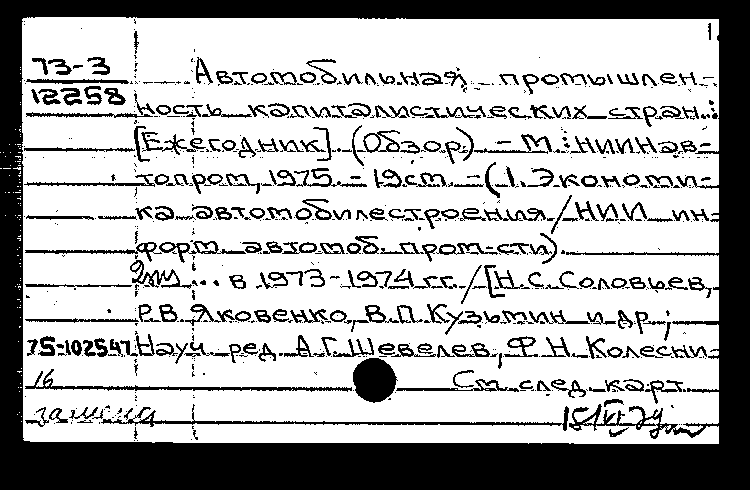 1.
73-3 Автомобильная промышлен-
12258 ность капиталистических стран.:
[Ежегодник] (Обзор) - М.: НИИНав-
топром, 1975. - 19см. - (1. Экономи-
ка автомобилестроения/НИИ ин-
форм. автомоб. пром-сти).
... в 1973-1974 гг. / [Н.С. Соловьев,
Р.В. Яковенко, В.П. Кузьмин и др.;
75-102547 Науч. ред. А.Г. Шевелев, Ф.Н. Колесни-
16 См. след. карт.
замена